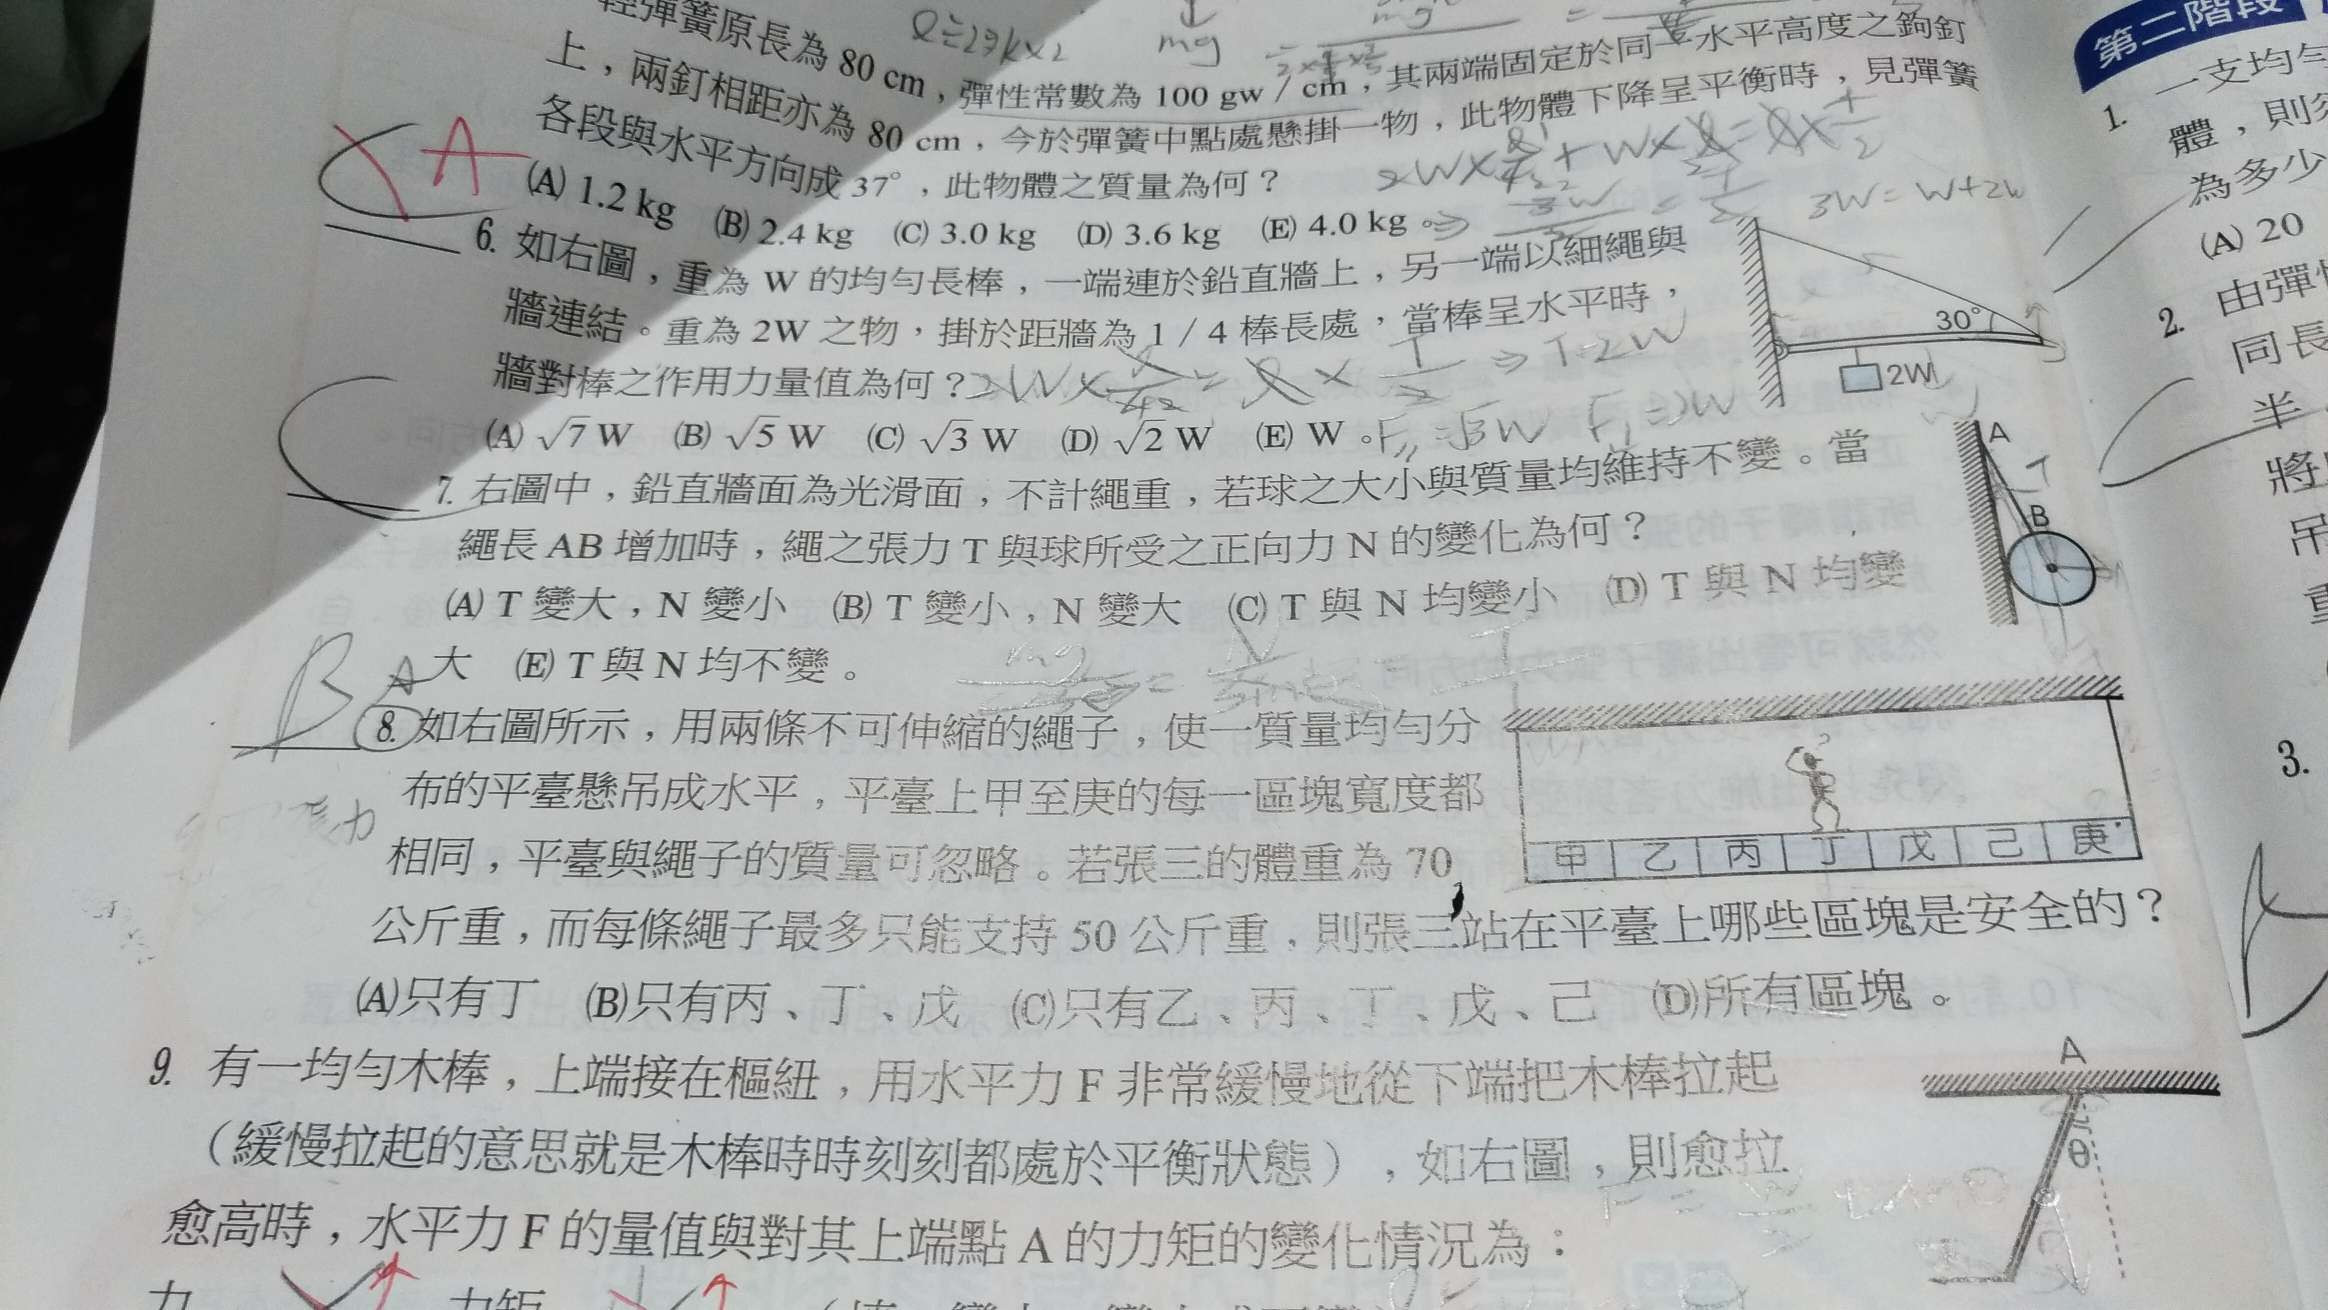 輕彈簧原長為 80 cm，彈性常數為 100 gw / cm，其兩端固定於同一水平高度之鉤釘
上，兩釘相距亦為 80 cm，今於彈簧中點處懸掛一物，此物體下降呈平衡時，見彈簧
各段與水平方向成 37°，此物體之質量為何？
(A) 1.2 kg (B) 2.4 kg (C) 3.0 kg (D) 3.6 kg (E) 4.0 kg。
C A
mg
2W×
3W = W+2W
6. 如右圖，重為 W 的均勻長棒，一端連於鉛直牆上，另一端以細繩與
牆連結。重為 2W 之物，掛於距牆為 1 / 4 棒長處，當棒呈水平時，
牆對棒之作用力量值為何？
(A) √7 W (B) √5 W (C) √3 W (D) √2 W (E) W。
⇒ T=2W
30°
2W
C
7. 右圖中，鉛直牆面為光滑面，不計繩重，若球之大小與質量均維持不變。當
繩長 AB 增加時，繩之張力 T 與球所受之正向力 N 的變化為何？
(A) T 變大，N 變小 (B) T 變小，N 變大 (C) T 與 N 均變小 (D) T 與 N 均變
大 (E) T 與 N 均不變。
A
T
B
B A
8. 如右圖所示，用兩條不可伸縮的繩子，使一質量均勻分
布的平臺懸吊成水平，平臺上甲至庚的每一區塊寬度都
相同，平臺與繩子的質量可忽略。若張三的體重為 70
公斤重，而每條繩子最多只能支持 50 公斤重，則張三站在平臺上哪些區塊是安全的？
(A)只有丁 (B)只有丙、丁、戊 (C)只有乙、丙、丁、戊、己 (D)所有區塊。
甲 乙 丙 丁 戊 己 庚
9. 有一均勻木棒，上端接在樞紐，用水平力 F 非常緩慢地從下端把木棒拉起
（緩慢拉起的意思就是木棒時時刻刻都處於平衡狀態），如右圖，則愈拉
愈高時，水平力 F 的量值與對其上端點 A 的力矩的變化情況為：
A
θ
力 力矩
第二階段
1. 一支均勻
體，則
為多少
(A) 20
2. 由彈
同長
半
將
吊
重
3.